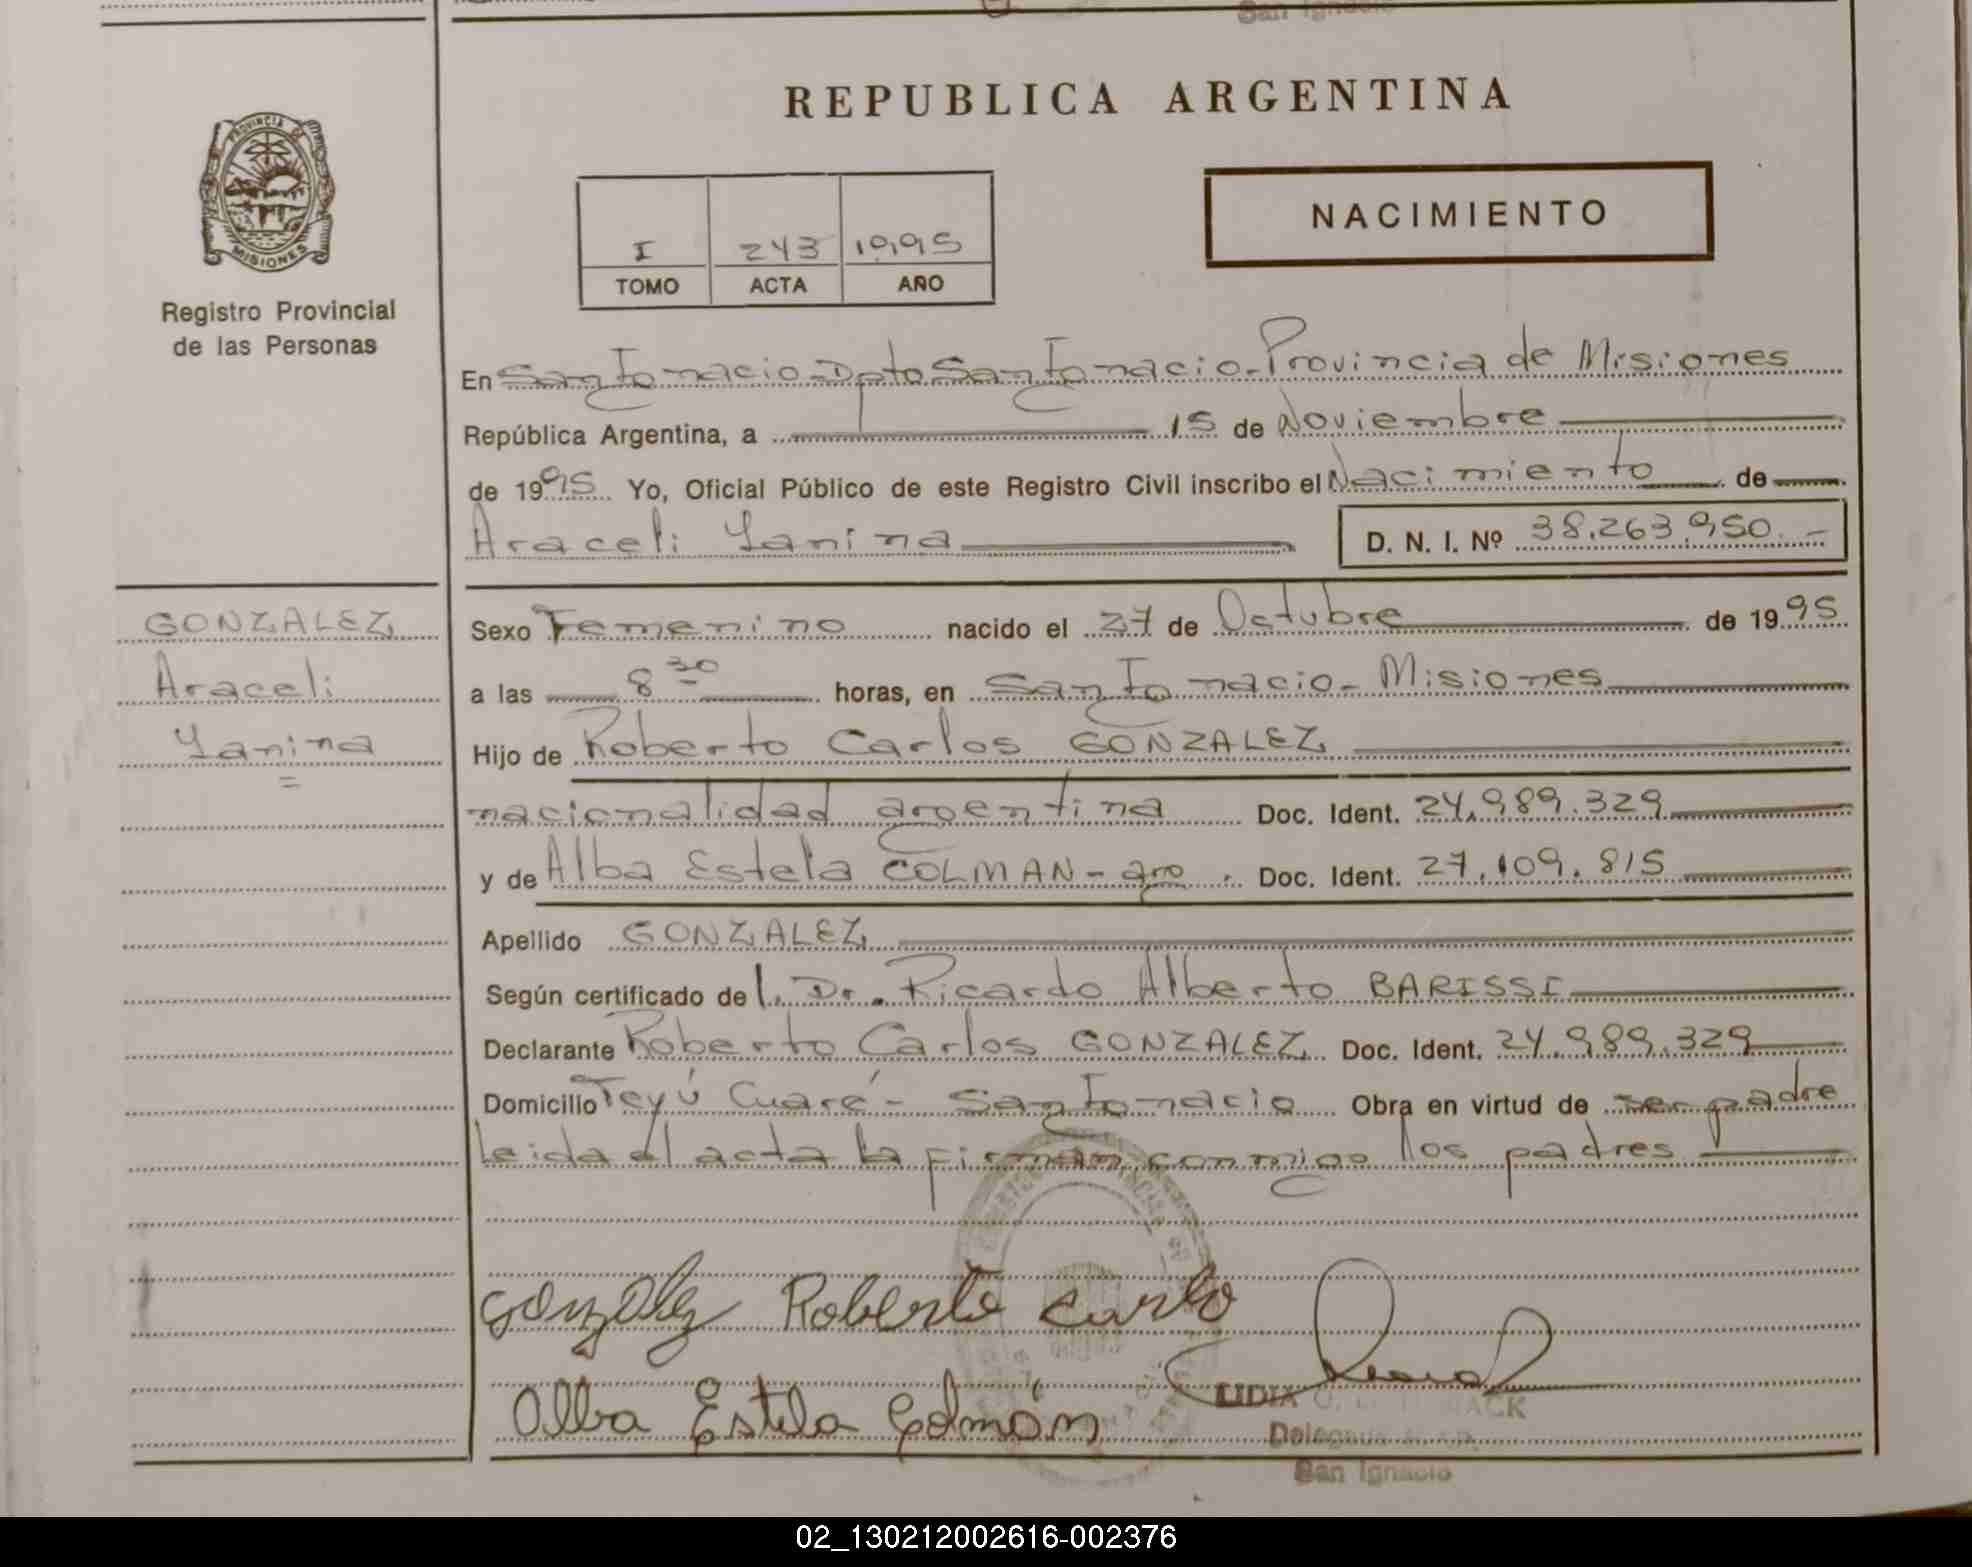 San Ignacio
REPUBLICA ARGENTINA
PROVINCIA DE
MISIONES
Registro Provincial
de las Personas
NACIMIENTO
I 243 19,95
TOMO ACTA AÑO
En San Ignacio-Dpto San Ignacio-Provincia de Misiones
República Argentina, a 15 de Noviembre
de 1995 Yo, Oficial Público de este Registro Civil inscribo el Nacimiento de
Araceli Yanina D. N. I. Nº 38.263.950.-
GONZALEZ
Araceli
Yanina
Sexo Femenino nacido el 27 de Octubre de 1995
a las 8 30 horas, en San Ignacio- Misiones
Hijo de Roberto Carlos GONZALEZ
nacionalidad argentina Doc. Ident. 24.989.329
y de Alba Estela COLMAN- arg. Doc. Ident. 27.109.815
Apellido GONZALEZ
Según certificado de l. Dr. Ricardo Alberto BARISSI
Declarante Roberto Carlos GONZALEZ Doc. Ident. 24.989.329
Domicilio Teyú Cuaré- San Ignacio Obra en virtud de ser padre
Leida el acta la firman conmigo los padres
Gonzalez Roberto Carlo
Alba Estela Colmán
LIDIA
Delegada
San Ignacio
02_130212002616-002376